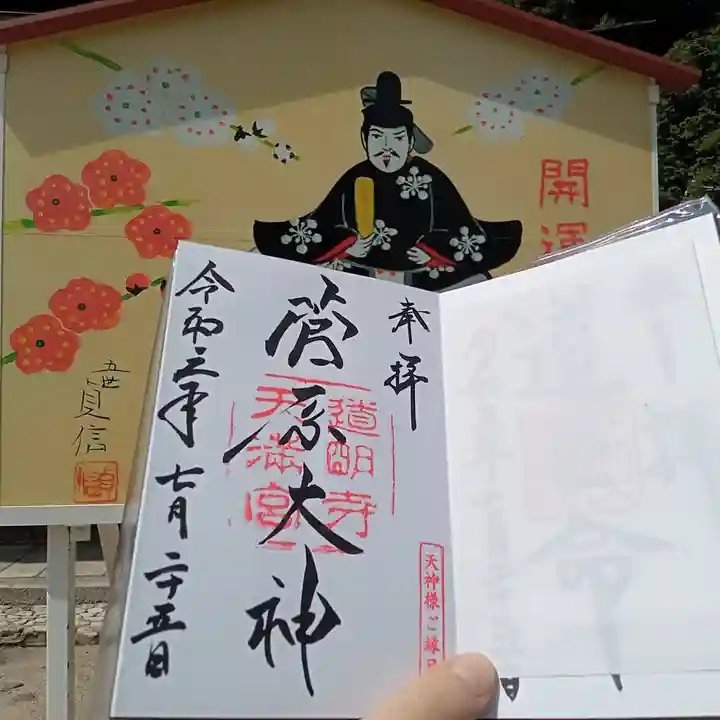 開運
五世
貞信
奉拝
菅原大神
道明寺
天満宮
天神様ご縁日
令和三年七月二十五日